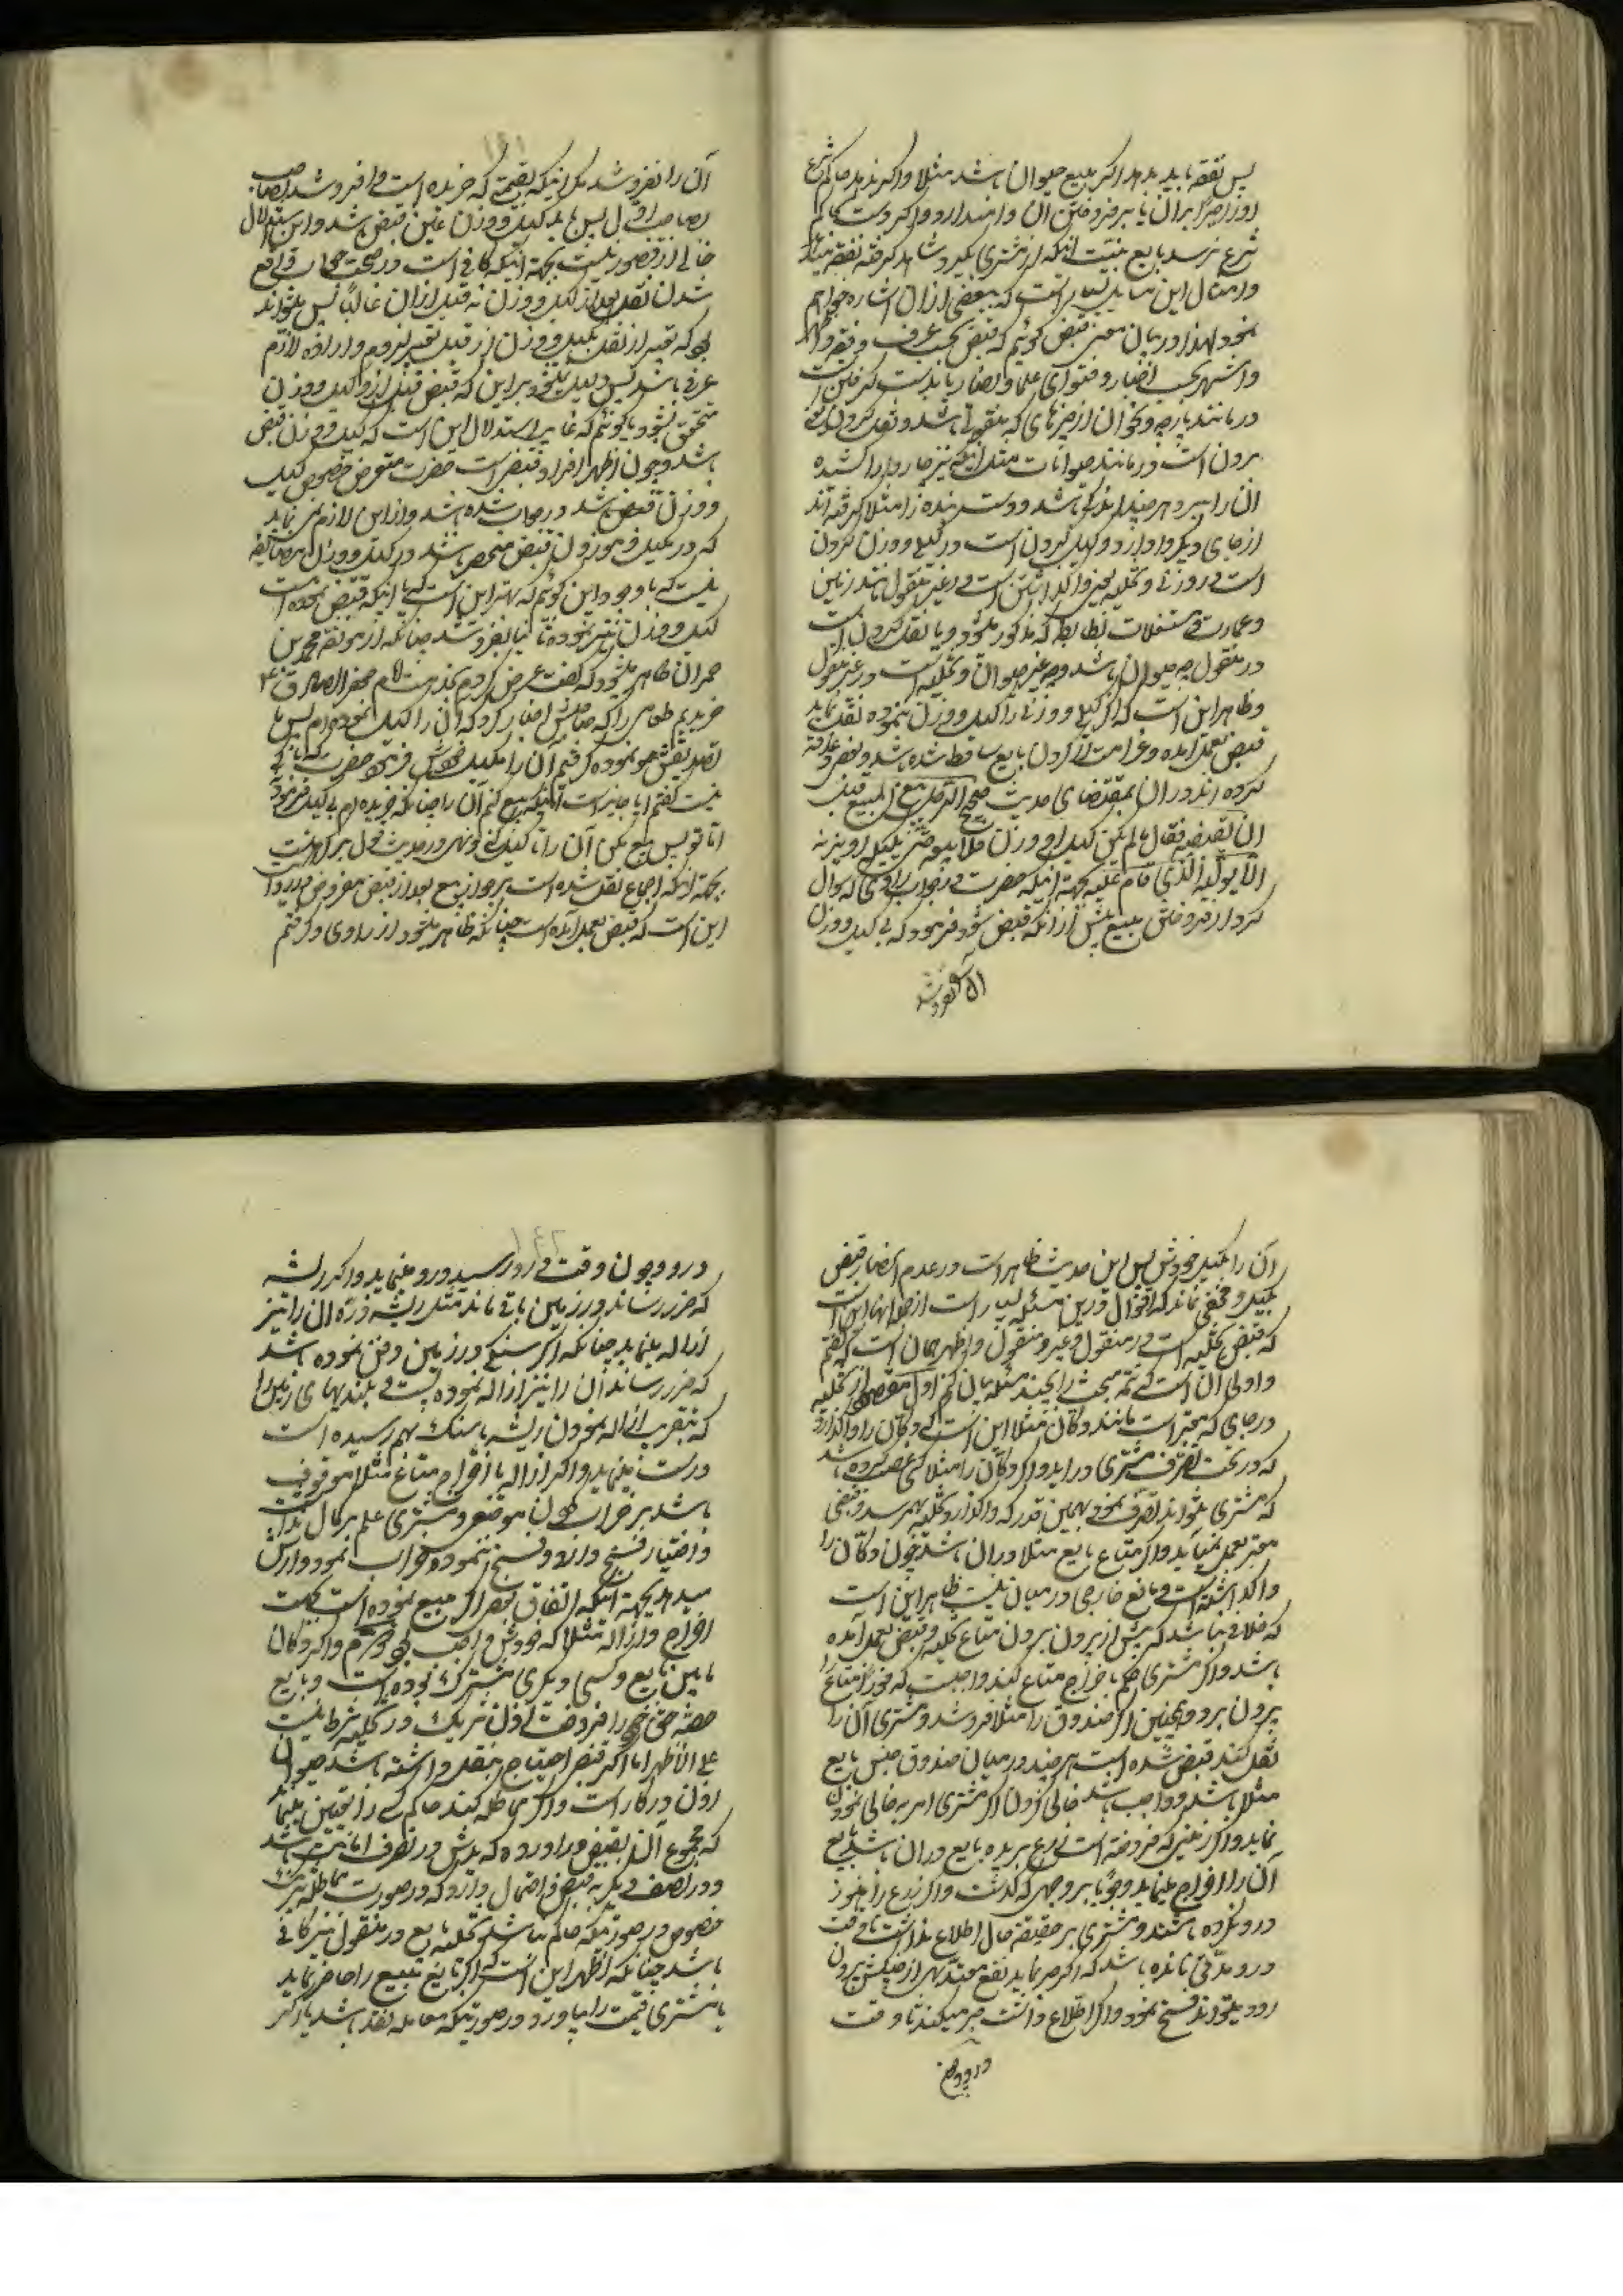 پس نفقه باید بدهد اگر مبیع حیوان باشد مثلا و اگر ندهد حاکم شرع
او را جبرا بر آن یا بر فروختن آن وامیدارد و اگر دست بحاکم
شرع نرسد بایع به نیت اینکه از مشتری بگیرد شاهد گرفته نفقه
و امثال این مسایل بسیار است که ببعضی از آن اشاره خواهم
نمود لهذا در بیان معنی قبض گوئیم که قبض بحسب عرف
و اشهر بحسب اخبار و فتوای علما و انصار یا بدست گرفتن است
در مانند پارچه و نحو آن از چیزهای که منقول باشد و نقل کردن
برون است و در مانند حیوانات مثل اینکه نیز چاروا را کشیده
آن را ببرد هر چند اندکی باشد و دست بنده را مثلا گرفته آنند
از جای دیگر وادارد و کیل کردن است در کیلی و وزن کردن
است در وزنی و تخلیه یعنی واگذاشتن است در غیر منقول مانند زمین
و عمارت و مستغلات که مذکور میشود و یا نقل کردن است
در منقول چه حیوان باشد و چه غیر حیوان و تخلیه است در غیر منقول
و ظاهر این است که اگر کیلی و وزنی را کیل و وزن ننموده نقل نماید
قبض بعمل آمده و غرامت از گردن بایع ساقط شده باشد
کرده اند در آن بمقتضای حدیث صحیح الرجل یبیع المبیع قبل
ان یقبضه فقال ما لم یکن کیل او وزن فلا تبعه حتی تکیله او تزنه
الا ان یولیه الذی قام علیه بجهة اینکه حضرت در جواب راوی که سوال
کرد از فروختن مبیع پیش از آنکه قبض شود فرمود که بی کیل و وزن
آن را نفروشد
آن را نفروشد مگر اینکه بقیمتی که خریده است وا فروشد بصاحب
بصاحب اول پس باید کیل و وزن عین قبض باشد و این استدلال
خالی از قصور نیست بجهة اینکه کافی است در صحت جواب واقع
شدن نقل بعد از کیل و وزن نه قبل از آن غالبا پس میتواند
بود که تعبیر از نقل بکیل و وزن از قبیل تعبیر لزوم و اراده لازم
عرفی باشد پس دلیل نمیشود بر این که قبض قبل از کیل و وزن
متحقق نشود یا گوئیم که غایة استدلال این است که کیل و وزن قبض
باشد و چون اظهر افراد قبض است حضرت متعرض خصوص کیل
و وزن قبض باشد در جواب شده باشد و از این لازم نمی نماید
که در مکیل و موزون قبض منحصر باشد در کیل و وزن
نیست با وجود این گوئیم که بهتر این است که با اینکه قبض نموده است
کیل و وزن نیز نموده ثانیا بفروشد چنانکه از موثقه محمد بن
حمران ظاهر میشود که گفت عرض کردم بخدمت امام جعفر الصادق ع
خریدیم طعامی را که صاحبش اخبار کرد که آن را کیل نموده ام پس ما
تصدیقش نموده گرفتیم آن را بکیل خودش فرمود حضرت که باکی
نیست گفتم ایا جایز است اینکه بیع کنم آن را چنانکه خریده ام بی کیل فرمود
اما تو پس بیع مکن آن را تا کیل کنی و نهی در حدیث محمول بر کراهت
بجهة اینکه اجماع نقل شده است بر جواز بیع بعد از قبض
این است که قبض بعمل آمده است چنانکه ظاهر میشود از راوی و گرفتم
آن را بکیل خودش پس این حدیث ظاهر است در عدم انحصار قبض
بکیل و مخفی نماند که اقوال در این مسئله بسیار است از جمله انها این است
که قبض تخلیه است در منقول و غیر منقول و اظهر همان است که گفتم
و اولی آن است که تتمه مبحث را بچند مسئله بیان کنم اول مقصود از تخلیه
در جای که معتبر است مانند دکان مثلا این است که دکان را واگذارد
که در تحت تصرف مشتری در اید و اگر دکان را مثلا کسی غصب کرده باشد
که مشتری نتواند تصرف نمود بهمین قدر که واگذارد تخلیه بهم رسد و قبض
معتبر بعمل نمی آید و اگر متاع بایع مثلا در ان باشد چون دکان را
واگذاشته است و مانع خارجی در میان نیست ظاهر این است
که خلافی نباشد که پیش از برون بردن متاع تخلیه و قبض بعمل آمده
باشد و اگر مشتری حکم باخراج متاع کند واجبست که فورا متاع را
برون برد و همچنین اگر صندوق را مثلا فروشد و مشتری آن را
نقل کند قبض شده است هر چند در میان صندوق جنس بایع
مثلا باشد و واجب باشد خالی کردن اگر مشتری امر به خالی نمودن
نماید و اگر زمینی که فروخته است زرع بریده بایع در ان باشد بایع
آن را اخراج مینماید وجوبا بر وجهی که گذشت و اگر زرع را هنوز
درو نکرده باشند و مشتری بر حقیقة حال اطلاع نداشت تا وقت
درو مدتی مانده باشد که اگر صبر نماید نفع معتد به از چنگش برون
رود میتواند فسخ نمود و اگر اطلاع داشت صبر میکند تا وقت
درو و چون
۱۴۲
درو و چون وقت درو رسید درو مینماید و اگر ریشه
که ضرر رساند در زمین باقی ماند مثل ریشه ذرة ان را نیز
ازاله مینماید چنانکه اگر سنگی در زمین دفن نموده باشد
که ضرر رساند آن را نیز ازاله نموده پست و بلندیهای زمین را
که بتقریب ازاله نمودن ریشه یا سنگ بهم رسیده است
درست مینماید و اگر ازاله یا اخراج متاع مثلا موقوف
باشد بر خراب کردن موضعی و مشتری علم بر حال نداشت
و اختیار فسخ دارد و فسخ ننموده خراب نمود و ارش
میدهد بجهة اینکه اتفاق بضرر مبیع نموده است بجهت
اخراج و ازاله مثلا که خودش واجب بود و اگر دکان
مابین بایع و کسی دیگری مشترک بوده است و بایع
حصه خود را فروخت اذن شریک در تخلیه شرط نیست
علی الاظهر اما اگر قبض احتیاج بنقل داشته باشد چون حیوان
اذن در کار است و اگر مماطله کند حاکم کسی را تعیین مینماید
که مجموع آن را بقبض در اورده که پیش در تصرف امانت باشد
و در نصف دیگر به قبض و احتمال دارد که در صورت مماطله شریک
خصوص در صورتیکه حاکم نباشد تخلیه بایع در منقول نیز کافی
باشد چنانکه اظهر این است که اگر بایع مبیع را حاضر نماید
یا مشتری قیمت را بیاورد در صورتیکه معامله نقد باشد یا اگر